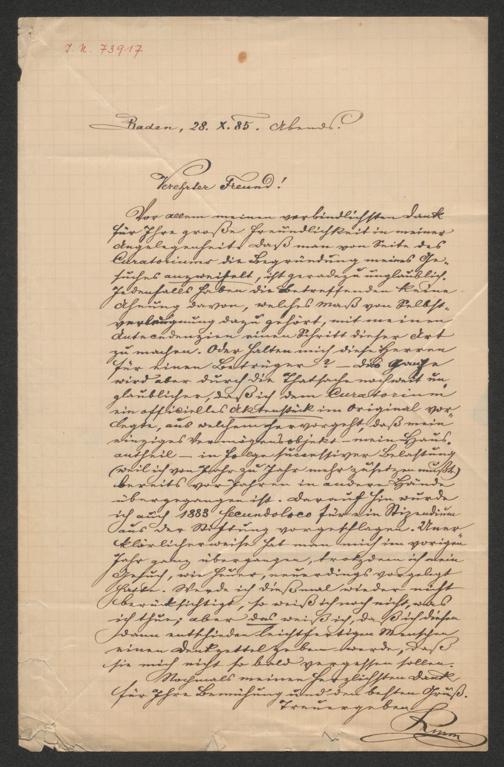 J. N. 73917
Baden, 28. X. 85. Abends.
Verehrter Freund!
Vor allem meinen verbindlichsten Dank
für Ihre große Freundlichkeit in meiner
Angelegenheit. Daß man von Seite des
Curatoriums die Begründung meines Ge-
suches anzweifelt, ist geradezu unglaublich.
Jedenfalls haben die Betreffenden keine
Ahnung davon, welches Maß von Selbst-
verläugnung dazu gehört, mit meinen
Antecedenzien einen Schritt dieser Art
zu machen. Oder halten mich diese Herren
für einen Betrüger? — das Ganze
wird aber durch die Thatsache noch un
glaublicher, daß ich dem Curatorium
ein officielles Aktenstück im Original vor,
legte, aus welchem hervorgeht, daß mein
einziges Vermögensobjekt — mein Haus,
antheil — in Folge successiver Belastung
(weil ich von Jahr zu Jahr mehr zusetzen mußte)
bereits vor Jahren in andere Hände
übergegangen ist. Darauf hin wurde
ich auch 1883 secundo loco für ein Stipendium
aus der Stiftung vorgeschlagen. Uner
klärlicherweise hat man mich im vorigen
Jahr ganz übergangen, trotzdem ich mein
Gesuch, wie heuer, neuerdings vorgelegt
hatte. Werde ich dießmal wieder nicht
berücksichtigt, so weiß ich noch nicht, was
ich thue; aber das weiß ich, daß ich diesen
dann entschieden leichtfertigen Menschen
einen Denkzettel geben werde, daß
sie mich nicht so bald vergessen sollen.
Nochmals meinen herzlichsten Dank
für Ihre Bemühung und den besten Gruß.
Treuergeben